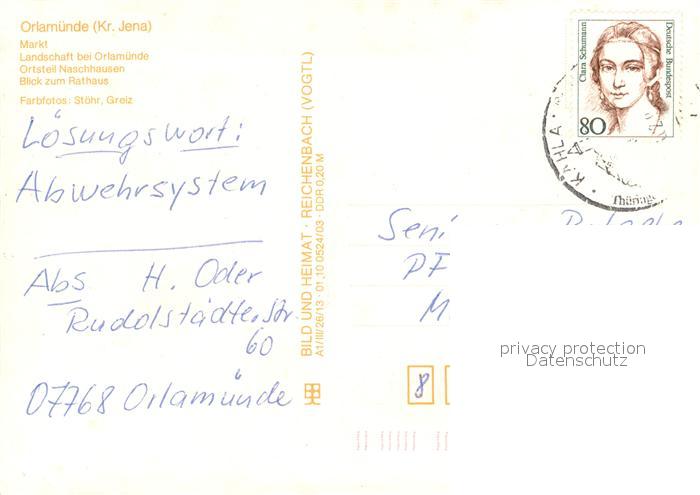 Orlamünde (Kr. Jena)
Markt
Landschaft bei Orlamünde
Ortsteil Naschhausen
Blick zum Rathaus
Farbfotos: Stöhr, Greiz
Lösungswort:
Abwehrsystem
Abs H. Oder
Rudolstädter Str.
60
07768 Orlamünde
BILD UND HEIMAT · REICHENBACH (VOGTL)
A1/III/26/13 · 01 10 0524/03 · DDR 0,20 M
Clara Schumann
Deutsche Bundespost
80
KAHLA
Thüring
Seni
PF
M
8
privacy protection
Datenschutz